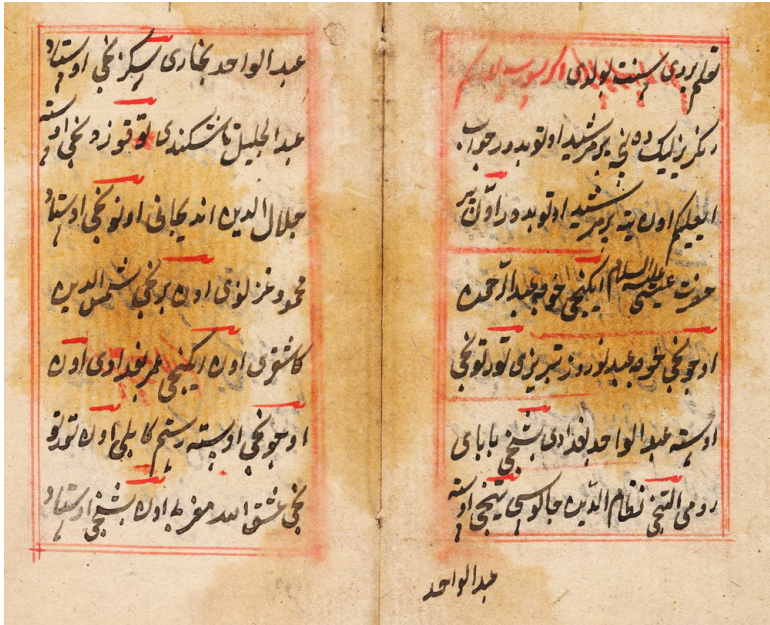 تعلیم بردی سنت بولدی اکر سورسه لار کیم
رنکریزلیک ده نچه پر مرشید اوتوبدور جواب
ایغیلکیم اون یته پر مرشید اوتوبدور اول پیر
حضرت عیسی علیه السلام ایکنجی خوجه عبد الرحمن
اوجونجی خوجه عبد نوروز تبریزی تورتونجی
اوسته عبد الواحد بغدادی بشنجی بابای
رومی التنجی نظام الدین جالوسی یتنجی اوسته
عبدالواحد
عبد الواحد بخاری سکزنجی اوستاد
عبد الجلیل تاشکندی توقوزونجی اوسته
جلال الدین اندیجانی اونونجی اوستاد
محمود غزلوی اون برنجی شمس الدین
کاشقری اون ایکنجی عمر بغدادی اون
اوجونجی اوسته رستم کابلی اون تورتو
نجی عشق الله مغربی اون بشنجی اوستاد